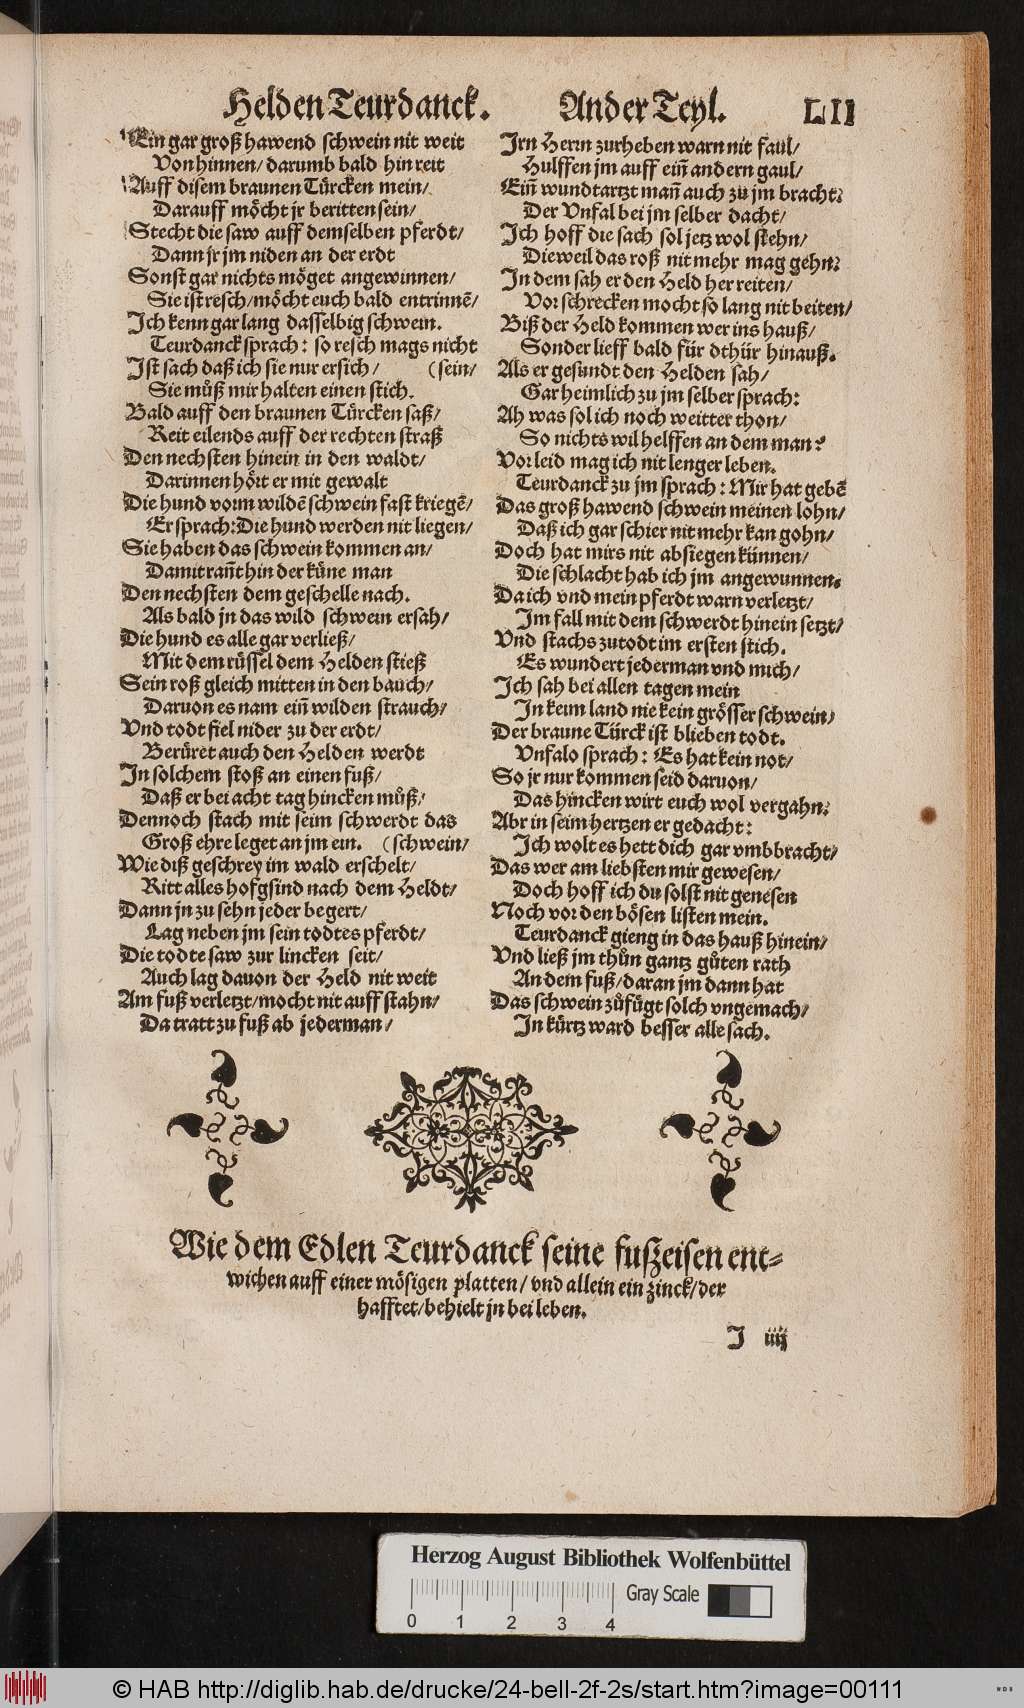 Helden Teurdanck. Ander Teyl. LII
Ein gar groß hawend schwein nit weit
Von hinnen/ darumb bald hin reit
Auff disem braunen Türcken mein/
Darauff möcht jr beritten sein/
Stecht die saw auff demselben pferdt/
Dann jr jm niden an der erdt
Sonst gar nichts möget angewinnen/
Sie ist resch/ möcht euch bald entrinnē/
Ich kenn gar lang dasselbig schwein.
Teurdanck sprach: so resch mags nicht
Ist sach daß ich sie nur ersich/ (sein/
Sie muͦß mir halten einen stich.
Bald auff den braunen Türcken saß/
Reit eilends auff der rechten straß
Den nechsten hinein in den waldt/
Darinnen hört er mit gewalt
Die hund vorm wildē schwein fast kriegē/
Er sprach: Die hund werden nit liegen/
Sie haben das schwein kommen an/
Damit rañt hin der küne man
Den nechsten dem geschelle nach.
Als bald jn das wild schwein ersah/
Die hund es alle gar verließ/
Mit dem rüssel dem Helden stieß
Sein roß gleich mitten in den bauch/
Daruon es nam eiñ wilden strauch/
Vnd todt fiel nider zu der erdt/
Berüret auch den Helden werdt
In solchem stoß an einen fuß/
Daß er bei acht tag hincken muͦß/
Dennoch stach mit seim schwerdt das
Groß ehre leget an jm ein. (schwein/
Wie diß geschrey im wald erschelt/
Ritt alles hofgsind nach dem Heldt/
Dann jn zu sehn jeder begert/
Lag neben jm sein todtes pferdt/
Die todte saw zur lincken seit/
Auch lag dauon der Held nit weit
Am fuß verletzt/ mocht nit auff stahn/
Da tratt zu fuß ab jederman/
Irn Herrn zurheben warn nit faul/
Hulffen jm auff eiñ andern gaul/
Eiñ wundtartzt mañ auch zu jm bracht:
Der Vnfal bei jm selber dacht/
Ich hoff die sach sol jetz wol stehn/
Dieweil das roß nit mehr mag gehn:
In dem sah er den Held her reiten/
Vor schrecken mocht so lang nit beiten/
Biß der Held kommen wer ins hauß/
Sonder lieff bald für dthür hinauß.
Als er gesundt den Helden sah/
Gar heimlich zu jm selber sprach:
Ah was sol ich noch weitter thon/
So nichts wil helffen an dem man?
Vor leid mag ich nit lenger leben.
Teurdanck zu jm sprach: Mir hat gebē
Das groß hawend schwein meinen lohn/
Daß ich gar schier nit mehr kan gohn/
Doch hat mirs nit absiegen künnen/
Die schlacht hab ich jm angewunnen.
Da ich vnd mein pferdt warn verletzt/
Im fall mit dem schwerdt hinein setzt/
Vnd stachs zu todt im ersten stich.
Es wundert jederman vnd mich/
Ich sah bei allen tagen mein
In keim land nie kein grösser schwein/
Der braune Türck ist blieben todt.
Vnfalo sprach: Es hat kein not/
So jr nur kommen seid daruon/
Das hincken wirt euch wol vergahn:
Abr in seim hertzen er gedacht:
Ich wolt es hett dich gar vmbbracht/
Das wer am liebsten mir gewesen/
Doch hoff ich du solst nit genesen
Noch vor den bösen listen mein.
Teurdanck gieng in das hauß hinein/
Vnd ließ jm thuͦn gantz guͦten rath
An dem fuß/ daran jm dann hat
Das schwein zuͦfügt solch vngemach/
In kürtz ward besser alle sach.
Wie dem Edlen Teurdanck seine fußeisen ent-
wichen auff einer mösigen platten/ vnd allein ein zinck/ der
hafftet/ behielt jn bei leben.
J iiij
Herzog August Bibliothek Wolfenbüttel
Gray Scale
0 1 2 3 4
© HAB http://diglib.hab.de/drucke/24-bell-2f-2s/start.htm?image=00111